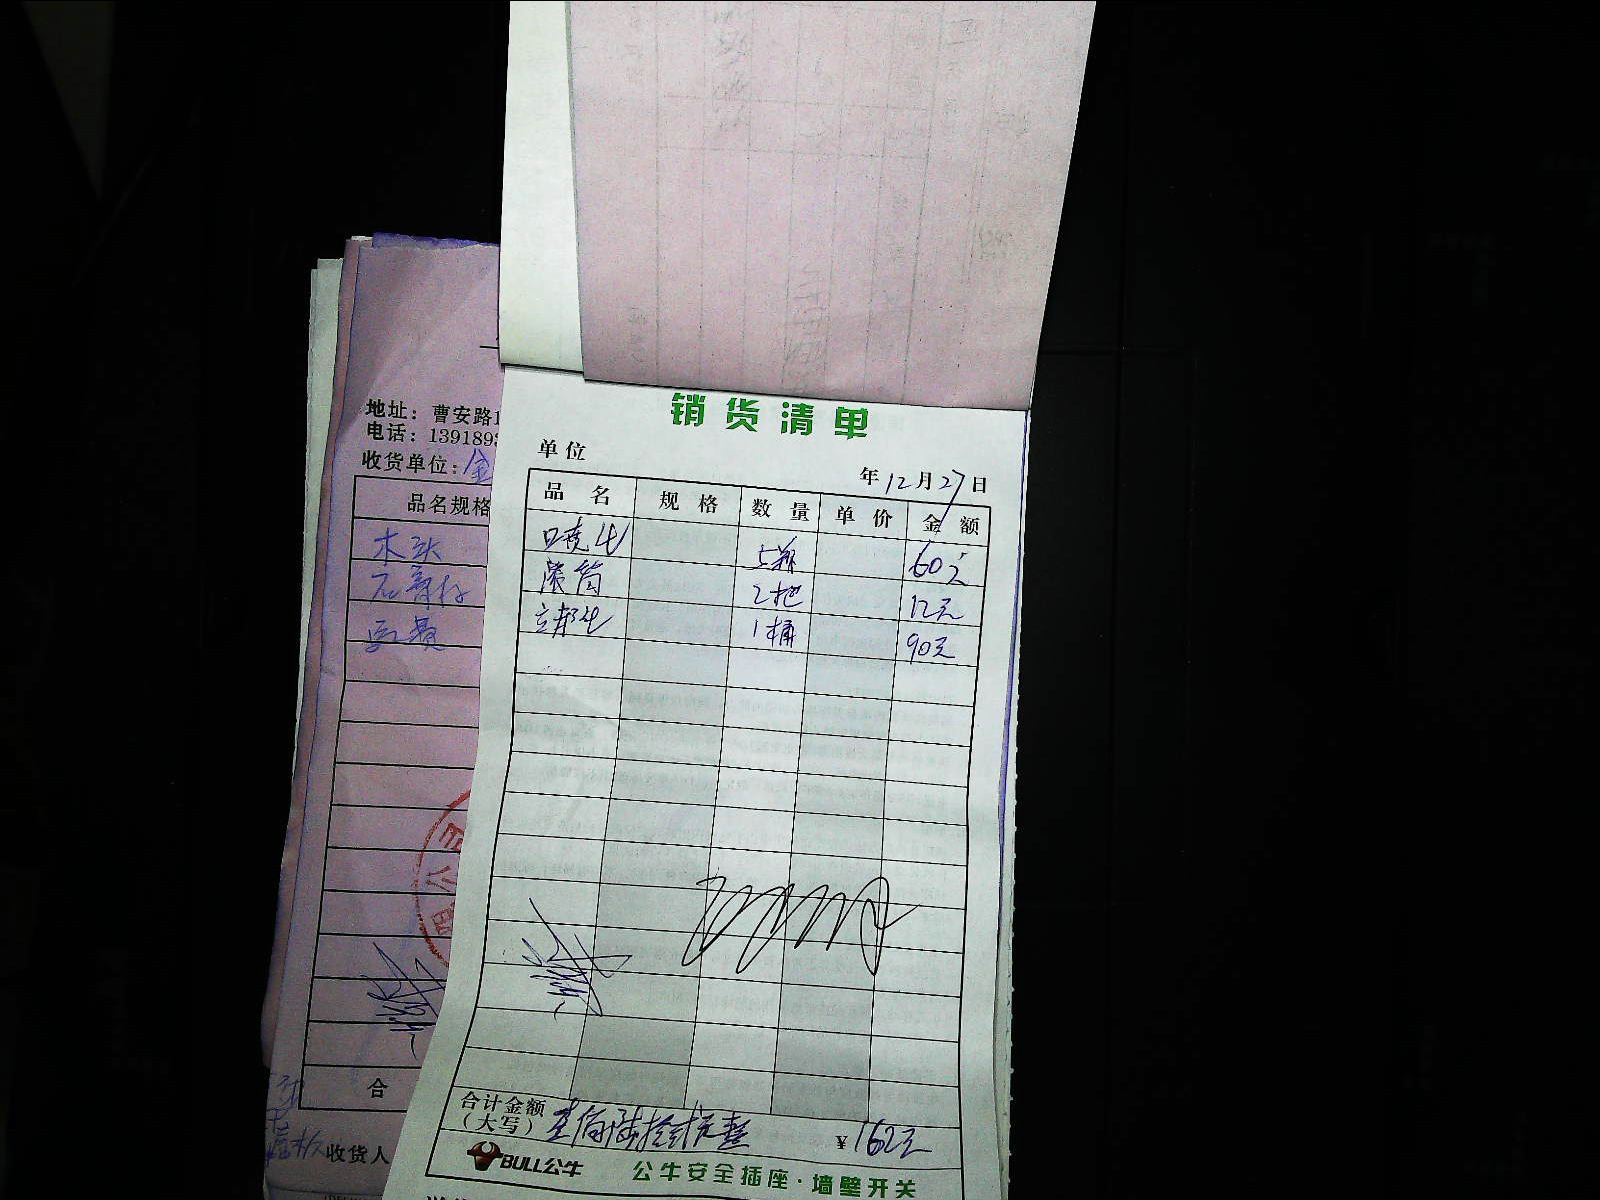 地址：曹安路1
电话：139189
收货单位：金
品名规格
木头
石膏
合
收货人
销货清单
单位
年12月27日
品名 规格 数量 单价 金额
口喷化 5瓶 60元
滚筒 2把 12元
立邦化 1桶 90元
合计金额
（大写）壹佰陆拾贰元整 ¥162元
BULL公牛 公牛安全插座·墙壁开关